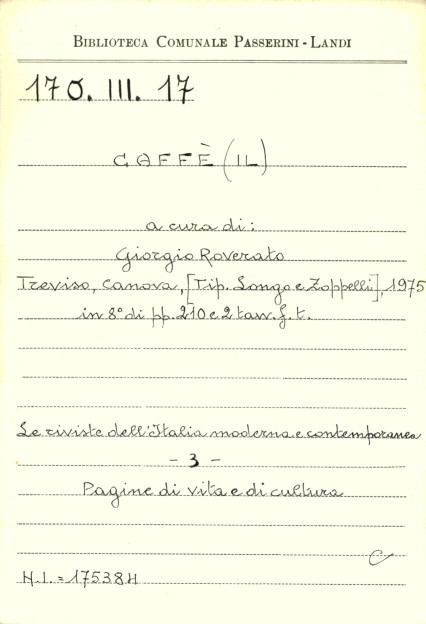 BIBLIOTECA COMUNALE PASSERINI - LANDI
170. III. 17
CAFFÈ (IL)
a cura di:
Giorgio Roverato
Treviso, Canova, [Tip. Longo e Zoppelli], 1975
in 8° di pp. 210 e 2 tavv. f. t.
Le riviste dell'Italia moderna e contemporanea
- 3 -
Pagine di vita e di cultura
C
N.I. = 175384